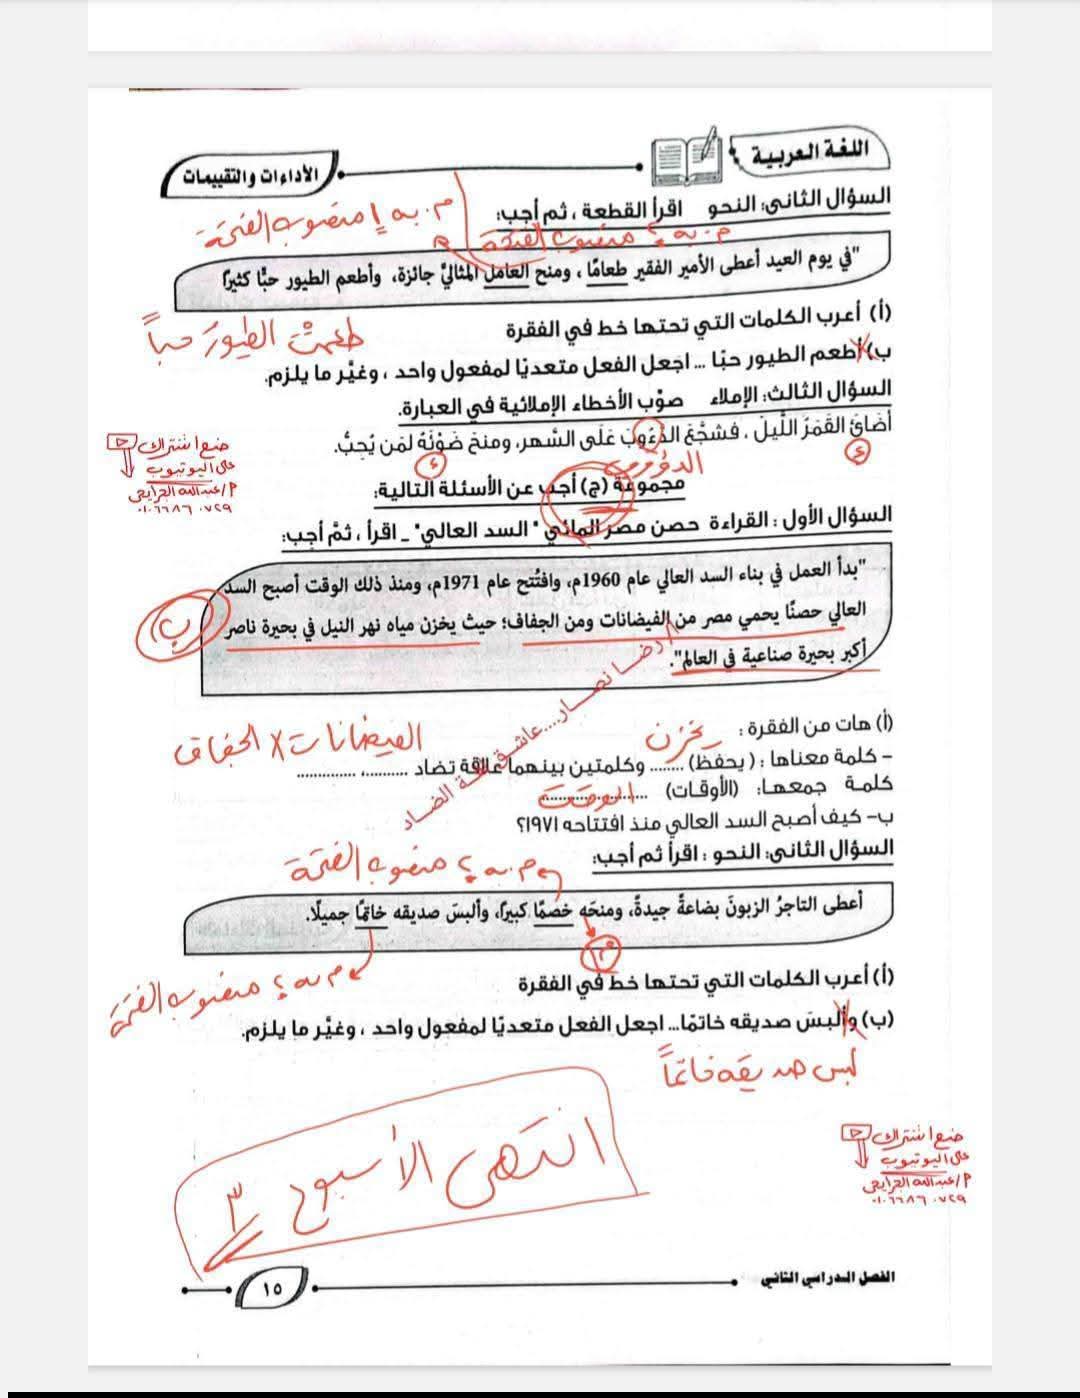 اللغة العربية
الأداءات والتقييمات
السؤال الثاني: النحو اقرأ القطعة ، ثم أجب:
م. به ١ منصوب الفتحة
م. به ٢ منصوب الفتحة
"في يوم العيد أعطى الأمير الفقير طعامًا ، ومنح العامل المثاليَّ جائزة، وأطعم الطيور حبًّا كثيرًا
(أ) أعرب الكلمات التي تحتها خط في الفقرة
طعمتْ الطيورُ حباً
ب) أطعم الطيور حبًا ... اجعل الفعل متعديًا لمفعول واحد ، وغيَّر ما يلزم.
السؤال الثالث: الإملاء صوَّب الأخطاء الإملائية في العبارة.
أضَائَ القَمَرُ اللَّيلَ ، فَشجَّعَ الدَءُوبَ عَلَى السَّهر، ومنحَ ضَوْئَهُ لمَن يُحِبُّ.
ء
ء
الدؤوب
ضع اشتراك
على اليوتيوب
م/عبدالله الجرايحى
٠١٠٦٦٨٦٠٧٢٩
مجموعة (ج) أجب عن الأسئلة التالية:
السؤال الأول : القراءة حصن مصر المائي "السد العالي" _ اقرأ ، ثمَّ أجب:
"بدأ العمل في بناء السد العالي عام 1960م، وافتُتح عام 1971م، ومنذ ذلك الوقت أصبح السد
العالي حصنًا يحمي مصر من الفيضانات ومن الجفاف؛ حيث يخزن مياه نهر النيل في بحيرة ناصر
أكبر بحيرة صناعية في العالم".
ب)
أ/رضا نصار....عاشق لغة الضاد
(أ) هات من الفقرة :
يخزن
الفيضانات X الجفاف
- كلمة معناها : ( يحفظ) ........ وكلمتين بينهما علاقة تضاد ..........، ..............
كلمة جمعها: (الأوقات) ......................
الوقت
ب- كيف أصبح السد العالي منذ افتتاحه ١٩٧١؟
السؤال الثاني: النحو : اقرأ ثم أجب:
م. به ٢ منصوب الفتحة
أعطى التاجرُ الزبونَ بضاعةً جيدةً، ومنحَه خصمًا كبيرًا، وألبسَ صديقه خاتمًا جميلًا.
م١
م به ٢ منصوب الفتحة
(أ) أعرب الكلمات التي تحتها خط في الفقرة
(ب) وألبسَ صديقه خاتمًا... اجعل الفعل متعديًا لمفعول واحد ، وغيَّر ما يلزم.
لبس صديقه خاتماً
انتهى الأسبوع ٣
ضع اشتراك
على اليوتيوب
م/عبدالله الجرايحى
٠١٠٦٦٨٦٠٧٢٩
الفصل الدراسي الثاني
١٥